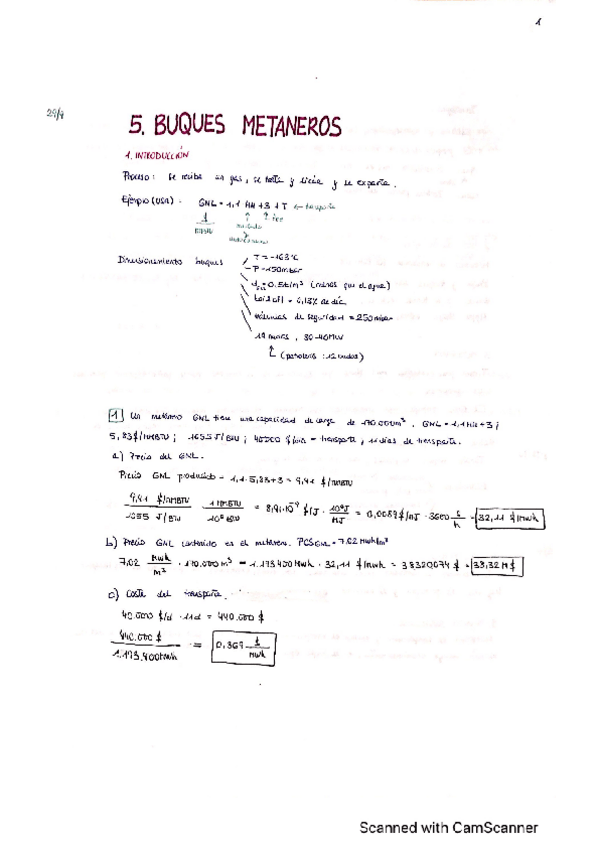 1
29/4
5. BUQUES METANEROS
1. INTRODUCCIÓN
Proceso: Se recibe un gas, se trata y licúa y se exporta.
Ejemplo (USA): GNL = 1,1 HH + 3 + T ← transporte
$
MMBTU
Dimensionamiento buques
T = -163ºC
P = 150mbar
= 0.5t/m³ (menos que el agua)
boil off = 0,15% de día
válvulas de seguridad = 250 mbar
19 nudos, 30-40MW
(petroleros: 12 nudos)
1 Un metanero GNL tiene una capacidad de carga de 170.000m³, GNL = 1,1 HH + 3;
5,83$/MMBTU; 1055 J/BTU; 40000 $/día = transporte, 11 días de transporte.
a) Precio del GNL.
Precio GNL producido = 1,1·5,83+3 = 9,41 $/MMBTU
9,41 $/MMBTU / 1055 J/BTU · 1MMBTU / 10⁶ BTU = 8,91·10⁻⁹ $/J · 10⁶J / MJ = 0,0089$/MJ · 3600 s/h = 32,11 $/MWh
b) Precio GNL contenido en el metanero. PCS GNL = 7.02 MWh/m³
7,02 MWh/m³ · 170.000m³ = 1.193.400MWh · 32,11 $/MWh = 38320074 $ = 33,32 M$
c) Coste del transporte.
40.000 $/d · 11d = 440.000 $
440.000 $ / 1.193.400MWh = 0,369 $/MWh
Scanned with CamScanner